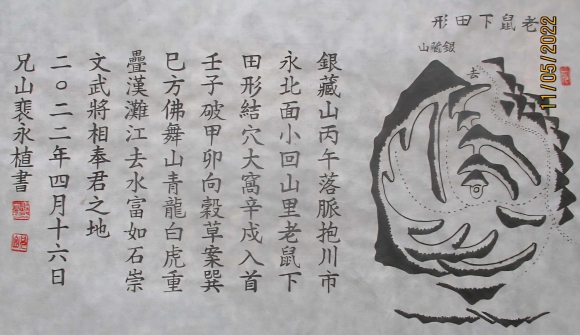 老鼠下田形
去
銀藏山丙午落脈抱川市
永北面小回山里老鼠下
田形結穴大窩辛戌入首
壬子破甲卯向穀草案巽
巳方佛舞山青龍白虎重
疊漢灘江去水富如石崇
文武將相奉君之地
二〇二二年四月十六日
兄山裵永植書
11/05/2022